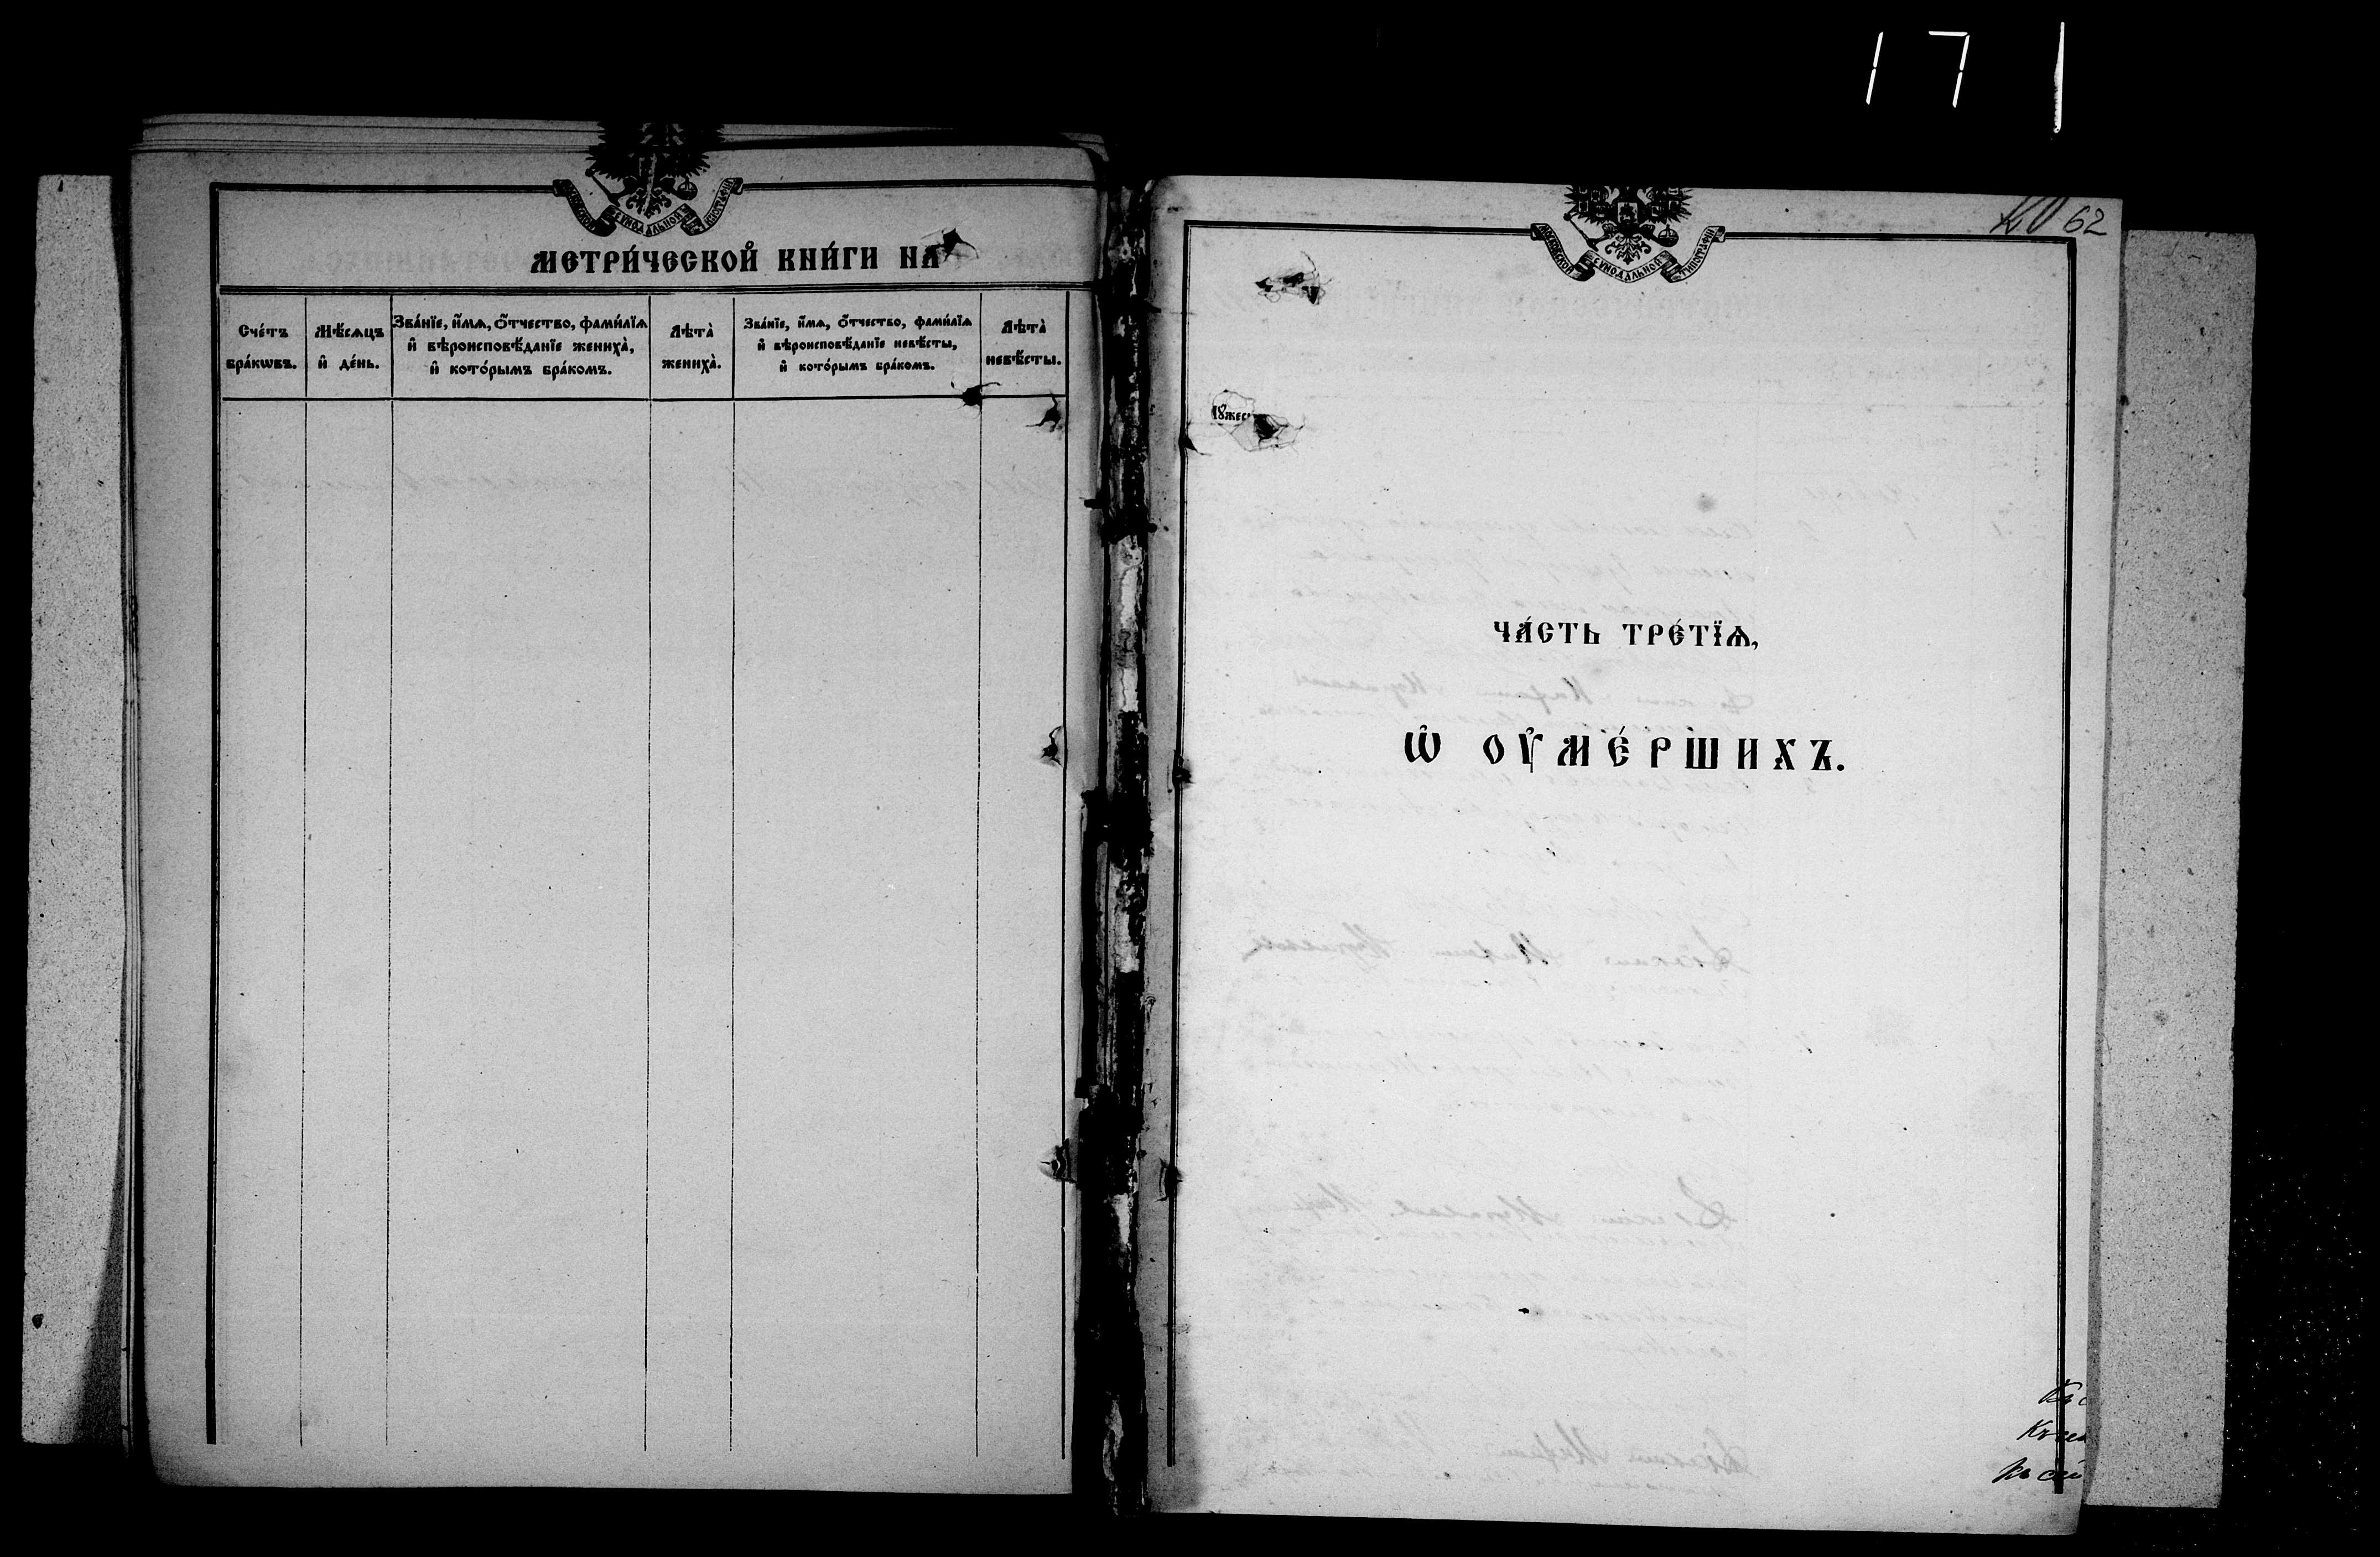 171
МОСКОВСКОЙ СѴНОДАЛЬНОЙ ТИПОГРАФІИ
МЕТРИ́ЧЕСКОЙ КНИ́ГИ НА
Сче́тъ бра́кѡвъ.
Мѣ́сѧцъ и҆ де́нь.
Зва́нїе, и҆́мѧ, ѻ҆́тчество, фами́лїѧ
и҆ вѣроисповѣ́данїе жениха̀,
и҆ кото́рымъ бра́комъ.
Лѣта̀ жениха̀.
Зва́нїе, и҆́мѧ, ѻ҆́тчество, фами́лїѧ
и҆ вѣроисповѣ́данїе невѣ́сты,
и҆ кото́рымъ бра́комъ.
Лѣта̀ невѣ́сты.
62
МОСКОВСКОЙ СѴНОДАЛЬНОЙ ТИПОГРАФІИ
ЧА́СТЬ ТРЕ́ТЇѦ,
Ѡ҆ ОУ҆МЕ́РШИХЪ.